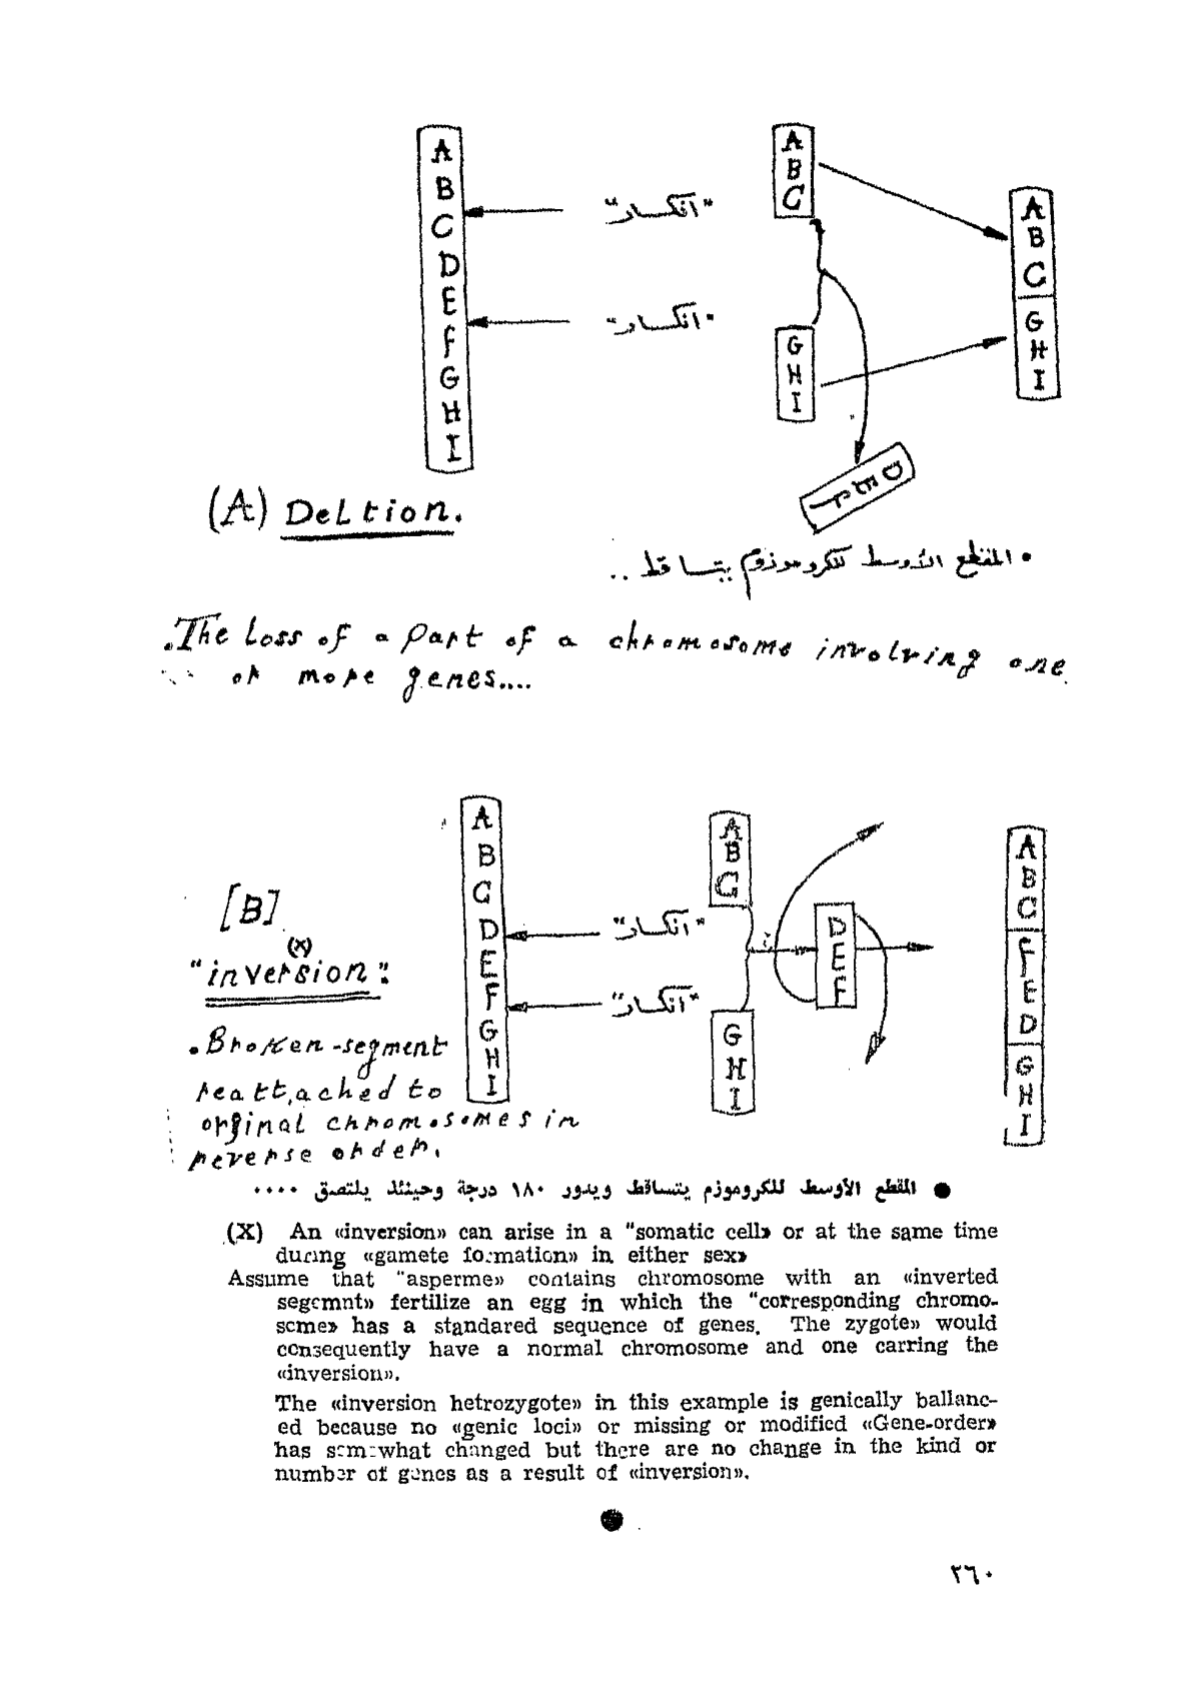 A
B
C
D
E
F
G
H
I
"انكسار"
"انكسار"
A
B
C
G
H
I
DEF
A
B
C
G
H
I
(A) DeLtion.
• المقطع الأوسط للكروموزوم يتساقط ..
.The Loss of a part of a chromosome involving one
or more genes....
[B]
(x)
"inversion":
. Broken-segment
reattached to
orginal chromosomes in
reverse order.
A
B
C
D
E
F
G
H
I
"انكسار"
"انكسار"
A
B
C
G
H
I
D
E
F
A
B
C
F
E
D
G
H
I
● المقطع الأوسط للكروموزم يتساقط ويدور ١٨٠ درجة وحينئذ يلتصق ....
(X) An «inversion» can arise in a "somatic cell» or at the same time
during «gamete formation» in either sex»
Assume that "asperme» contains chromosome with an «inverted
segemnt» fertilize an egg in which the "corresponding chromo-
some» has a standared sequence of genes. The zygote» would
consequently have a normal chromosome and one carring the
«inversion».
The «inversion hetrozygote» in this example is genically ballanc-
ed because no «genic loci» or missing or modified «Gene-order»
has somewhat changed but there are no change in the kind or
number of genes as a result of «inversion».
٢٦٠